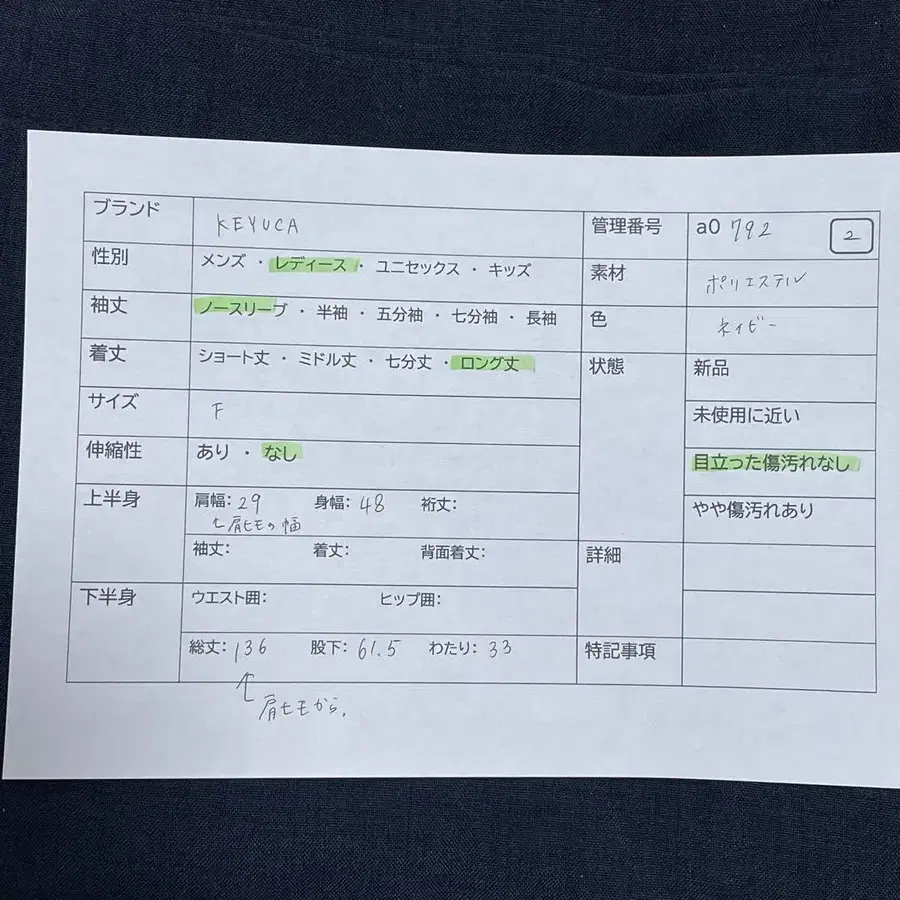 ブランド KEYUCA 管理番号 a0 792 2
性別 メンズ ・ レディース ・ ユニセックス ・ キッズ 素材 ポリエステル
袖丈 ノースリーブ ・ 半袖 ・ 五分袖 ・ 七分袖 ・ 長袖 色 ネイビー
着丈 ショート丈 ・ ミドル丈 ・ 七分丈 ・ ロング丈 状態 新品
サイズ F 未使用に近い
伸縮性 あり ・ なし 目立った傷汚れなし
上半身 肩幅: 29 身幅: 48 裄丈: やや傷汚れあり
↑肩ヒモの幅
袖丈: 着丈: 背面着丈: 詳細
下半身 ウエスト囲: ヒップ囲:
総丈: 136 股下: 61.5 わたり: 33 特記事項
↑肩ヒモから。